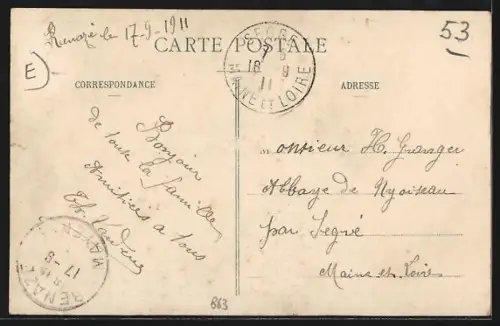 Renazé le 17-9-1911
53
E
CARTE POSTALE
CORRESPONDANCE
ADRESSE
SEGRÉ
18 9
11
MAINE ET LOIRE
Bonjour
de toute la famille
Amitiés a tous
Th.
RENAZÉ
17 - 9
MAYENNE
Monsieur H. Granger
Abbaye de Nyoiseau
par Segré
Maine et Loire
863